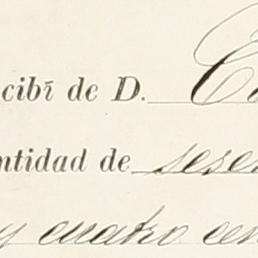 cibí de D. C
ntidad de sesen
y cuatro cen